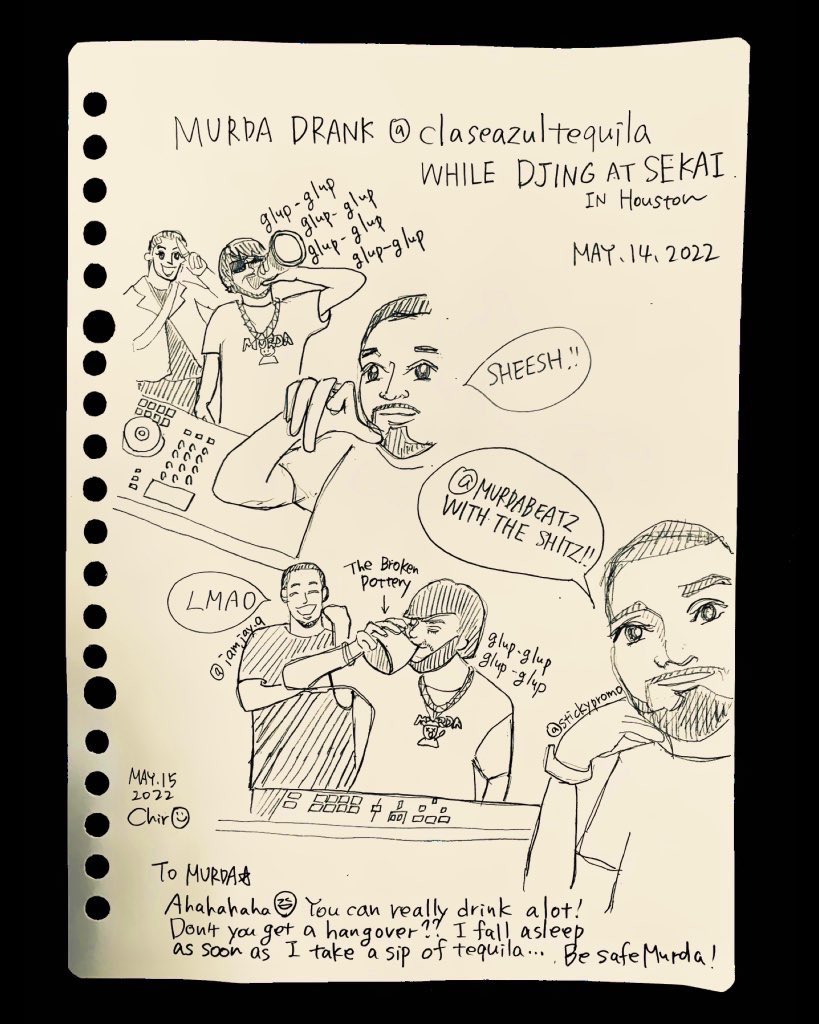 MURDA DRANK @claseazultequila
WHILE DJING AT SEKAI.
IN Houston
MAY.14.2022
glup-glup
glup-glup
glup-glup
glup-glup
MURDA
SHEESH!!
@MURDABEATZ
WITH THE SHITZ!!
LMAO
The Broken
Pottery
@iamjay.q
glup-glup
glup-glup
MURDA
@stickypromo
MAY.15
2022
Chiro
To MURDA☆
Ahahahaha You can really drink alot!
Don't you get a hangover?? I fall asleep
as soon as I take a sip of tequila... Be safe Murda!